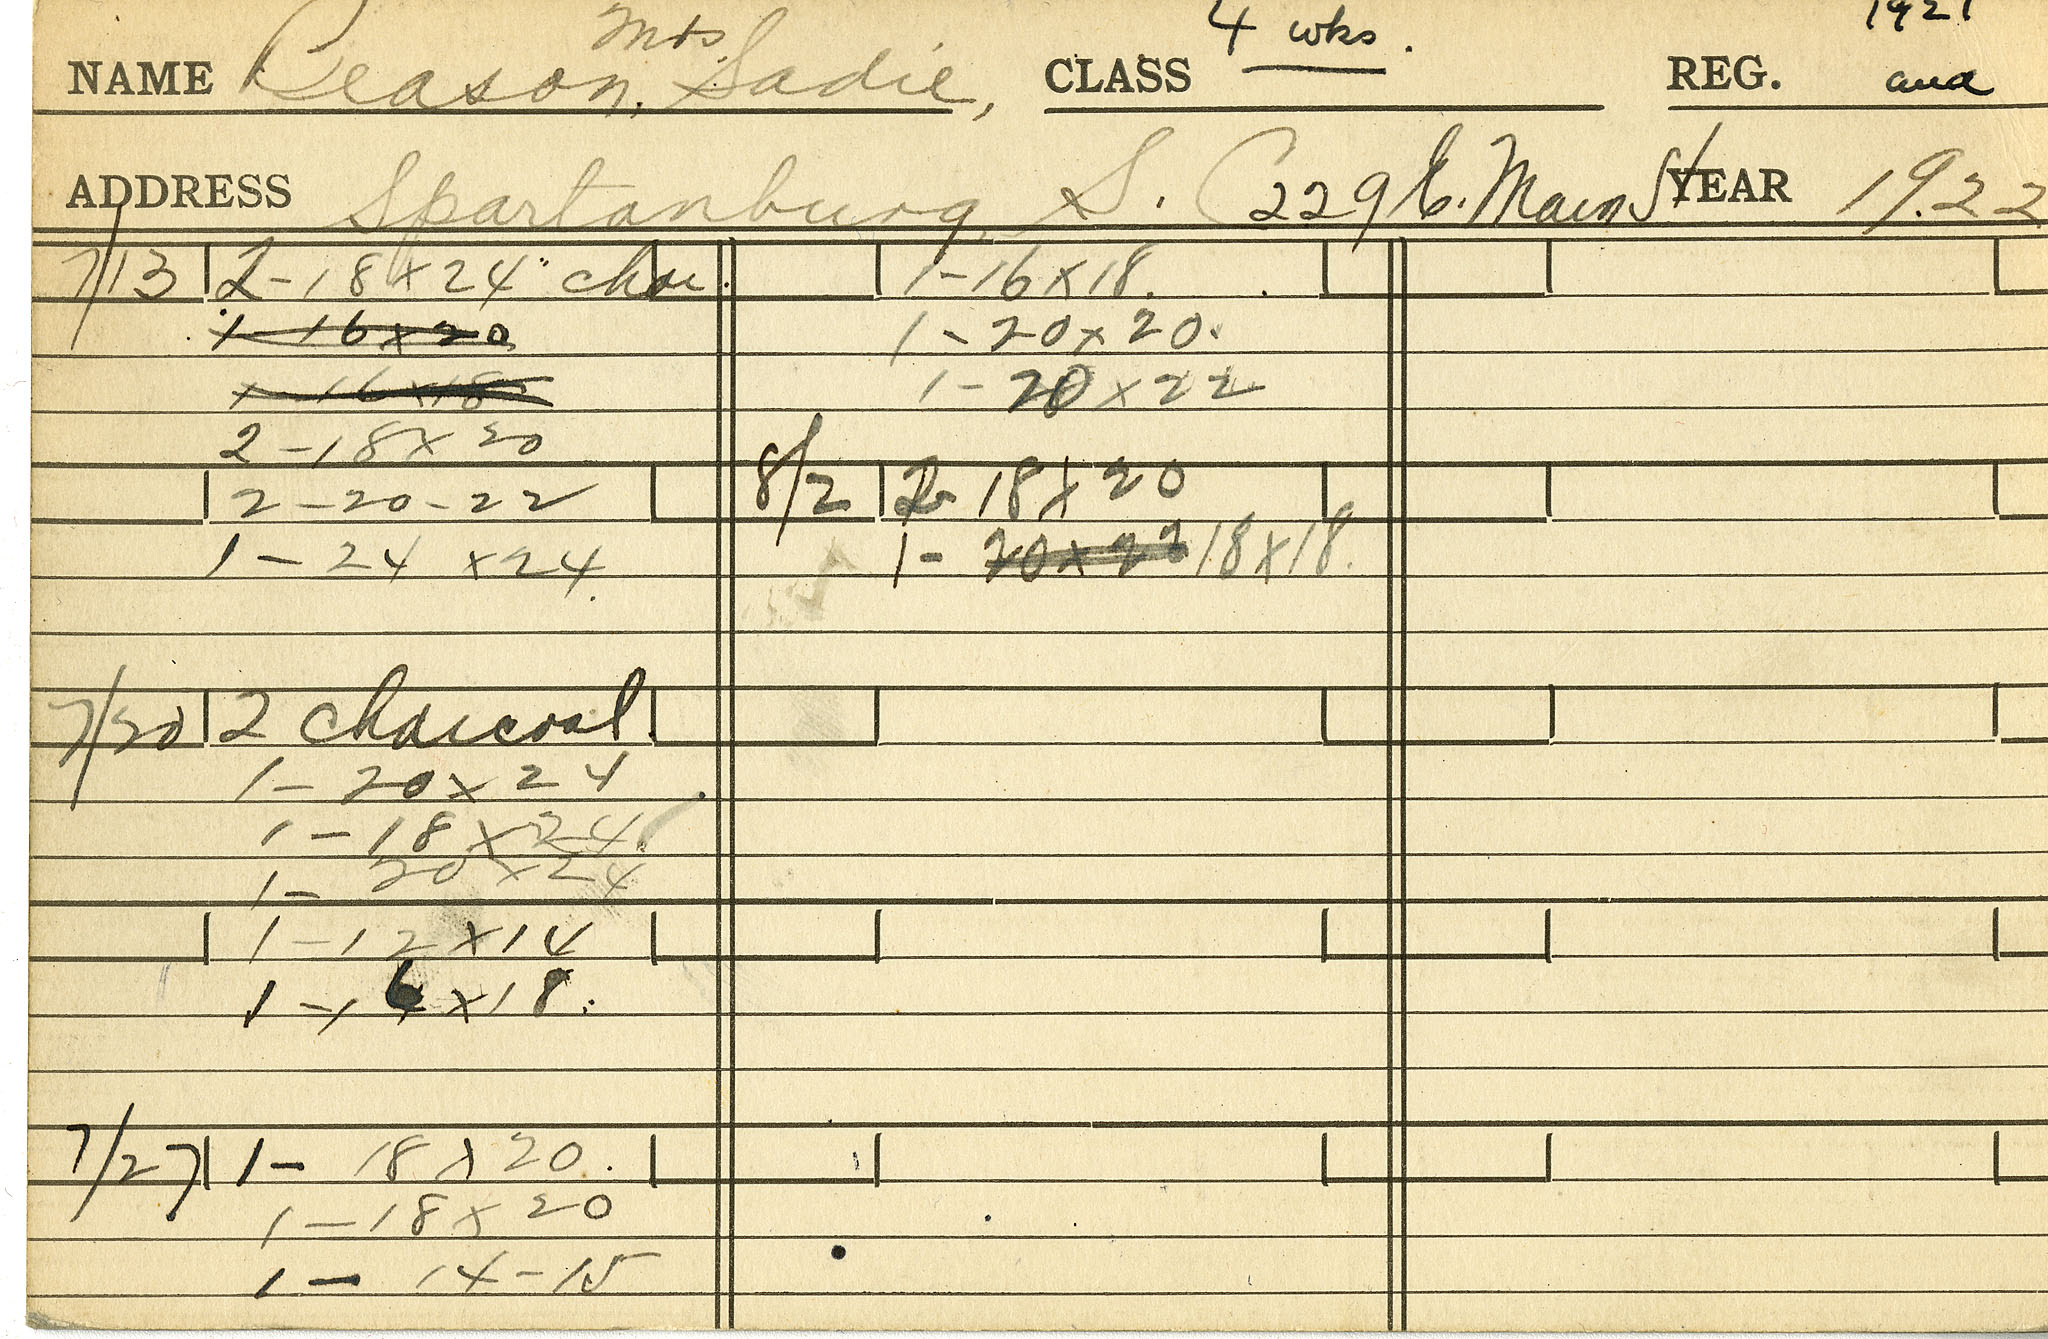 Mrs 4 wks. 1921
NAME Peason, Sadie, CLASS REG. and
ADDRESS Spartanburg, S. C 229 E. Main St YEAR 1922
7/13 2-18x24" char.
1-16x20
1-16x18
2-18x20
2-20-22
1-24x24.
7/20 2 charcoal.
1-20x24
1-18x24
1-20x24
1-12x14
1-16x18.
7/27 1-18x20.
1-18x20
1-14-15
1-16x18.
1-20x20.
1-20x22
8/2 2-18x20
1-20x22 18x18.